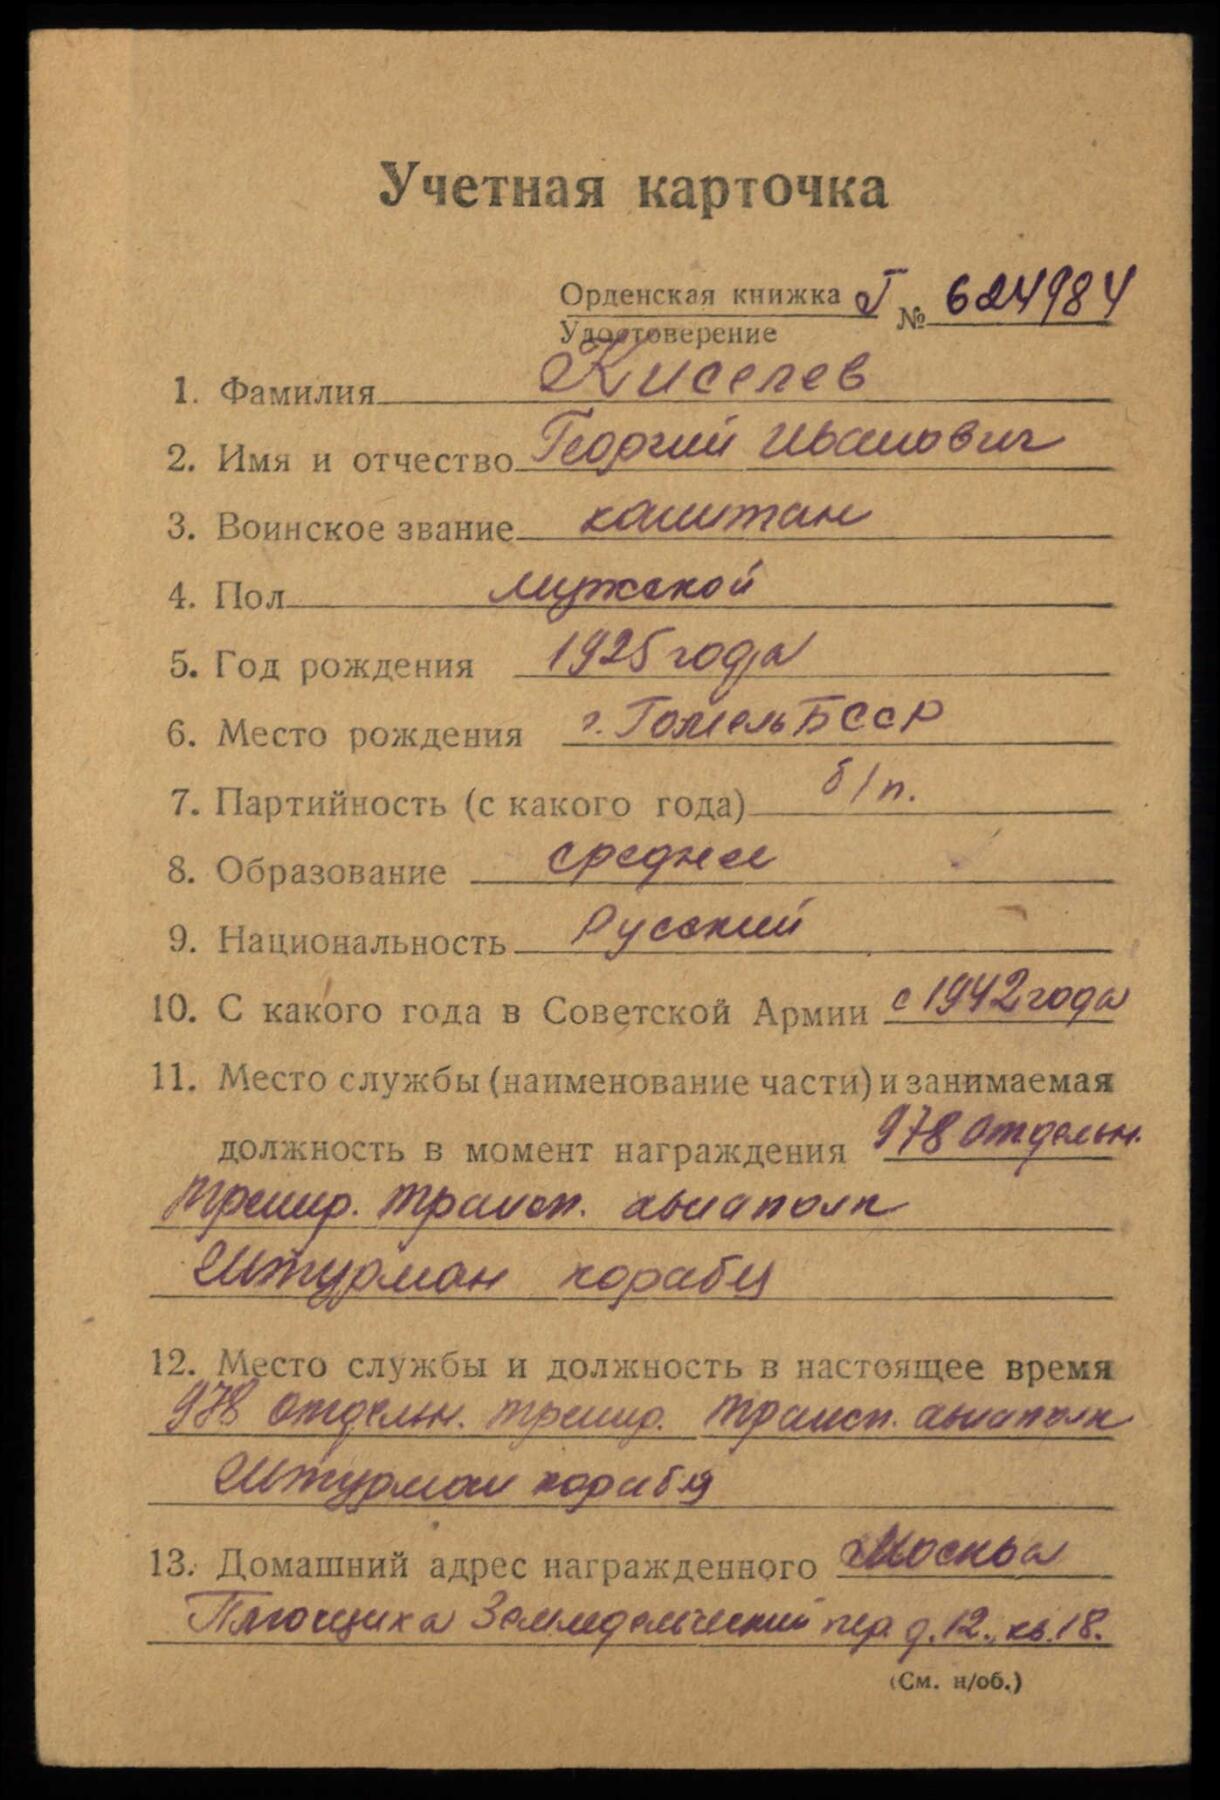 Учетная карточка
Орденская книжка Г № 624984
Удостоверение
1. Фамилия Киселев
2. Имя и отчество Георгий Иванович
3. Воинское звание капитан
4. Пол мужской
5. Год рождения 1925 года
6. Место рождения г. Гомель БССР
7. Партийность (с какого года) б/п.
8. Образование среднее
9. Национальность Русский
10. С какого года в Советской Армии с 1942 года
11. Место службы (наименование части) и занимаемая
должность в момент награждения 978 отдельн.
тренир. трансп. авиаполк
Штурман корабля
12. Место службы и должность в настоящее время
978 отдельн. тренир. трансп. авиаполк
Штурман корабля
13. Домашний адрес награжденного Москва
Плющиха Земледельческий пер. д. 12., кв. 18.
(См. н/об.)